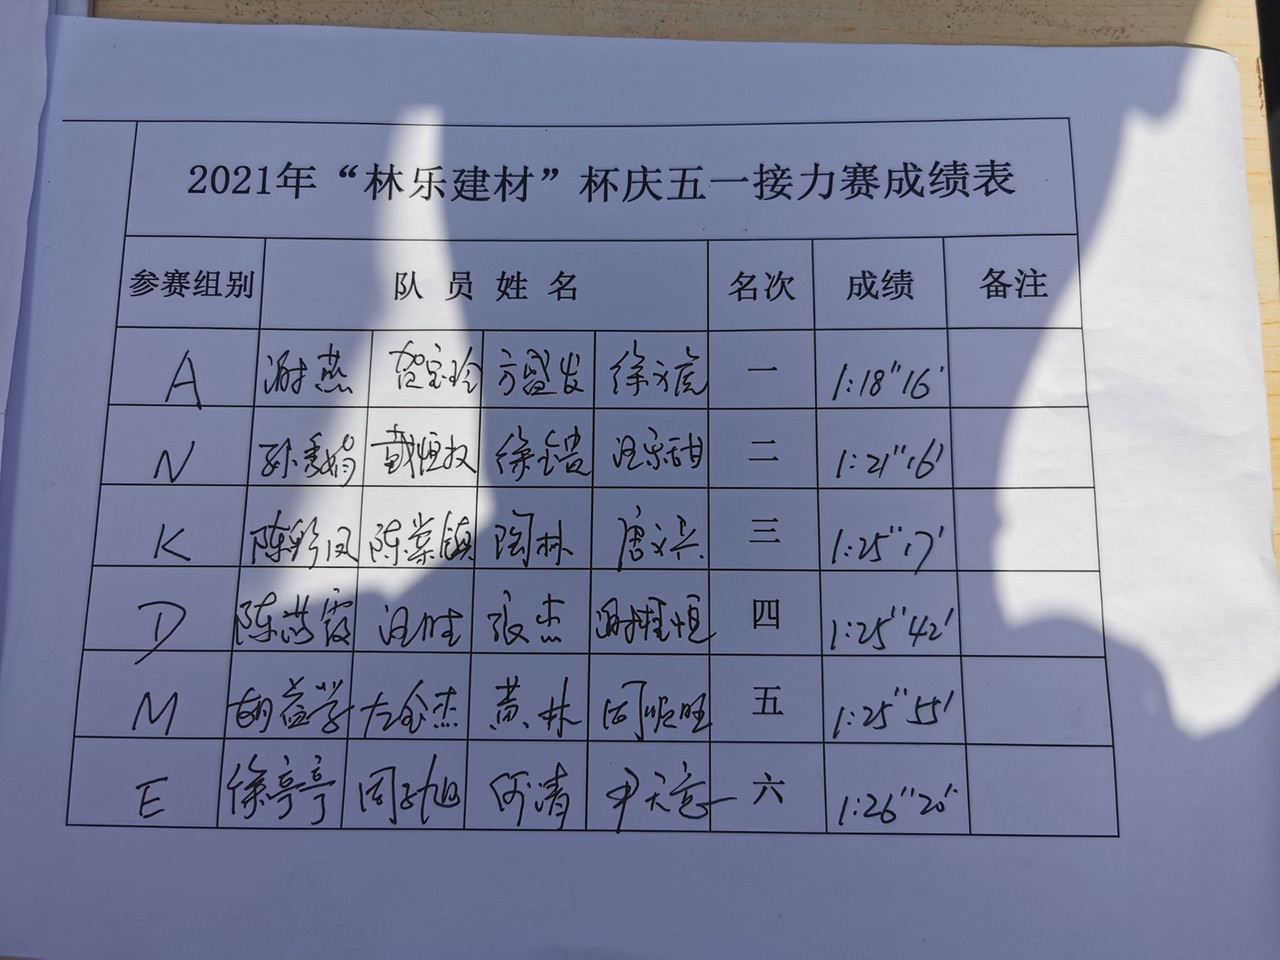 2021年“林乐建材”杯庆五一接力赛成绩表
参赛组别 队员姓名 名次 成绩 备注
A 谢燕 贺宝玲 方盛发 徐方虎 一 1:18"16'
N 孙秀娟 戴恒权 徐锴 汪宗甜 二 1:21"16'
K 陈彩凤 陈荣镇 陶林 唐文兵 三 1:25"17'
D 陈燕霞 汪胜 张杰 谢桂恒 四 1:25"42'
M 胡益学 左金杰 黄林 周顺旺 五 1:25"55'
E 徐亭亭 周子旭 何清 尹天意 六 1:26"20'